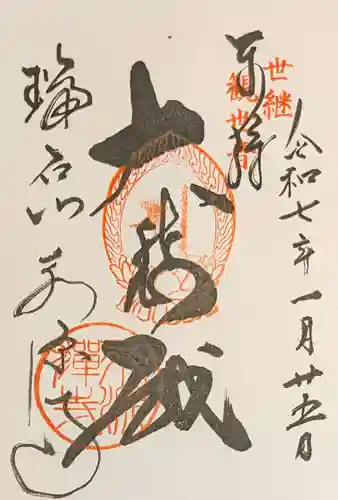 奉拝
世継
観世音
令和七年一月廿五日
大悲殿
瑞石山
永源寺
禅寺